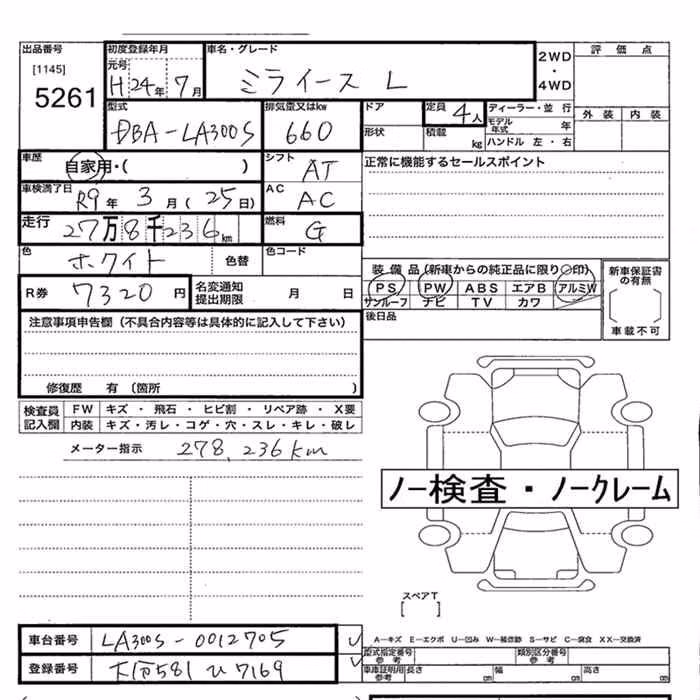 出品番号
[1145]
5261
初度登録年月
元号
H24年7月
車名・グレード
ミライース L
2WD
・
4WD
評価点
外装 内装
型式
DBA-LA300S
排気量又はkw
660
ドア
形状
定員 4人
積載 kg
ディーラー・並行
モデル年式 年
ハンドル 左・右
車歴
自家用・( )
シフト
AT
正常に機能するセールスポイント
車検満了日
R9年3月(25日)
AC
AC
走行
27万8千236km
燃料
G
色
ホワイト
色替
色コード
R券 7320円
名変通知
提出期限 月 日
装備品(新車からの純正品に限り○印)
PS PW ABS エアB アルミW
サンルーフ ナビ TV カワ
新車保証書
の有無
[ ]
車載不可
後日品
注意事項申告欄(不具合内容等は具体的に記入して下さい)
修復歴 有(箇所 )
検査員
記入欄
FW キズ・飛石・ヒビ割・リペア跡・X要
内装 キズ・汚レ・コゲ・穴・スレ・キレ・破レ
メーター指示 278,236km
ノー検査・ノークレーム
スペアT
[ ]
車台番号 LA300S-0012705
登録番号 581 ひ 7169
A-キズ E-エクボ U-凹み W-補修跡 S-サビ C-腐食 XX-交換済
型式指定番号
参考
類別区分番号
参考
車庫証明用
参考
長さ cm 幅 cm 高さ cm